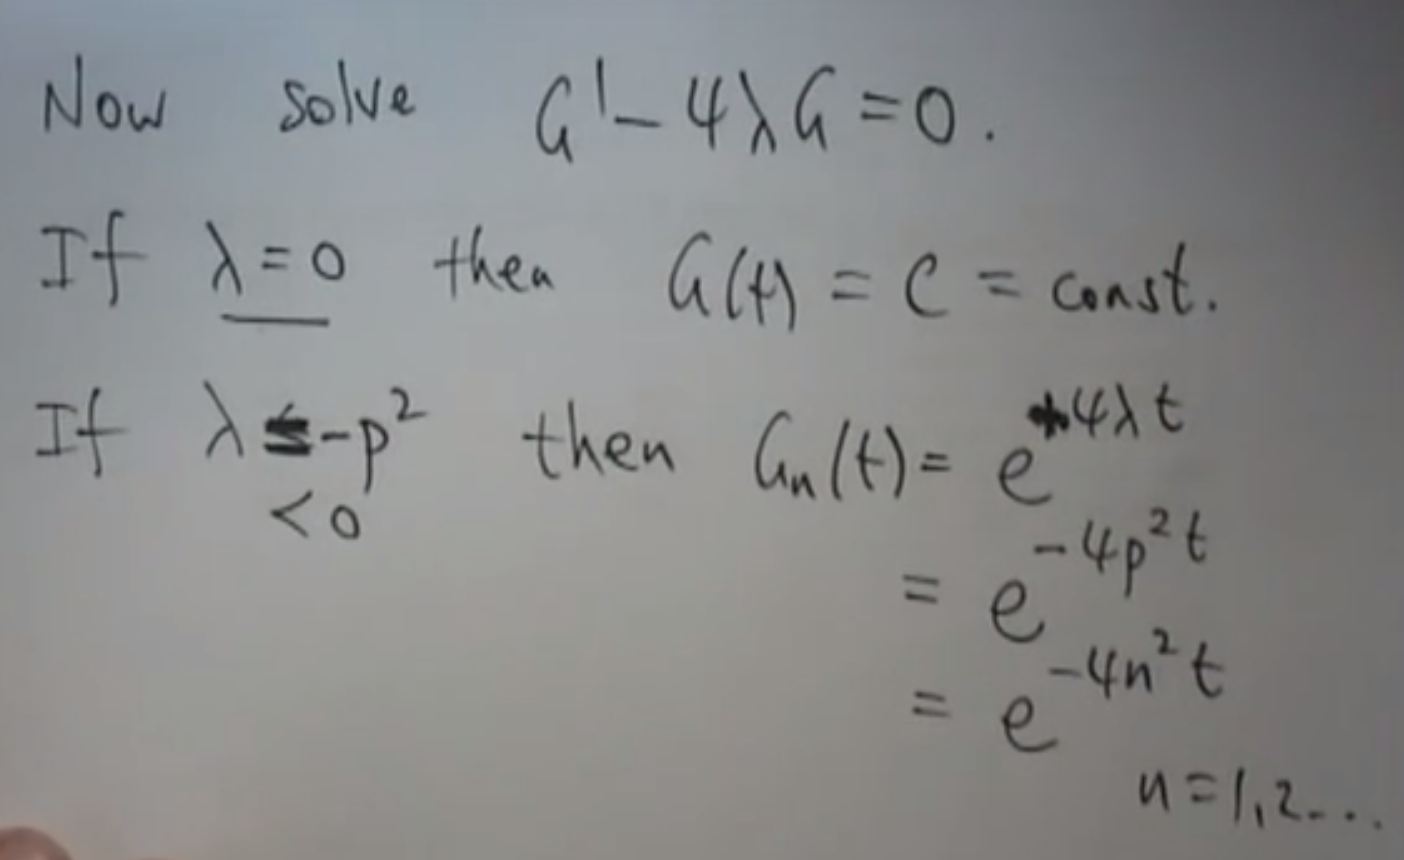 Now solve G' - 4λG = 0.
If λ = 0 then G(t) = C = const.
If λ = -p² then Gₙ(t) = e^{4λt}
< 0
= e^{-4p²t}
= e^{-4n²t}
n = 1, 2 ...